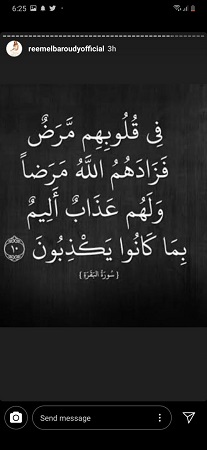 6:25
reemelbaroudyofficial 3h
فِى قُلُوبِهِم مَّرَضٌ
فَزَادَهُمُ اللَّهُ مَرَضاً
وَلَهُم عَذَابٌ أَلِيمٌ
بِمَا كَانُوا يَكْذِبُونَ ١٠
[ سُورَةُ البَقَرَةِ ]
Send message